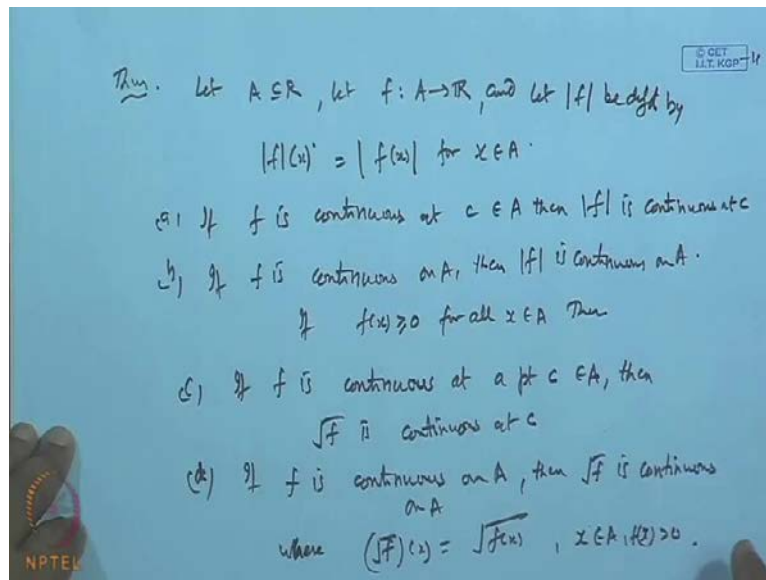 © CET
I.I.T. KGP
Thm. Let A ⊆ R, let f: A→R, and let |f| be defd by
|f|(x) = |f(x)| for x ∈ A.
(a) If f is continuous at c ∈ A then |f| is continuous at c
(b) If f is continuous on A, then |f| is continuous on A.
If f(x) ≥ 0 for all x ∈ A Then
(c) If f is continuous at a pt c ∈ A, then
√f is continuous at c
(d) If f is continuous on A, then √f is continuous
on A
where (√f)(x) = √f(x) , x ∈ A, f(x) ≥ 0.
NPTEL